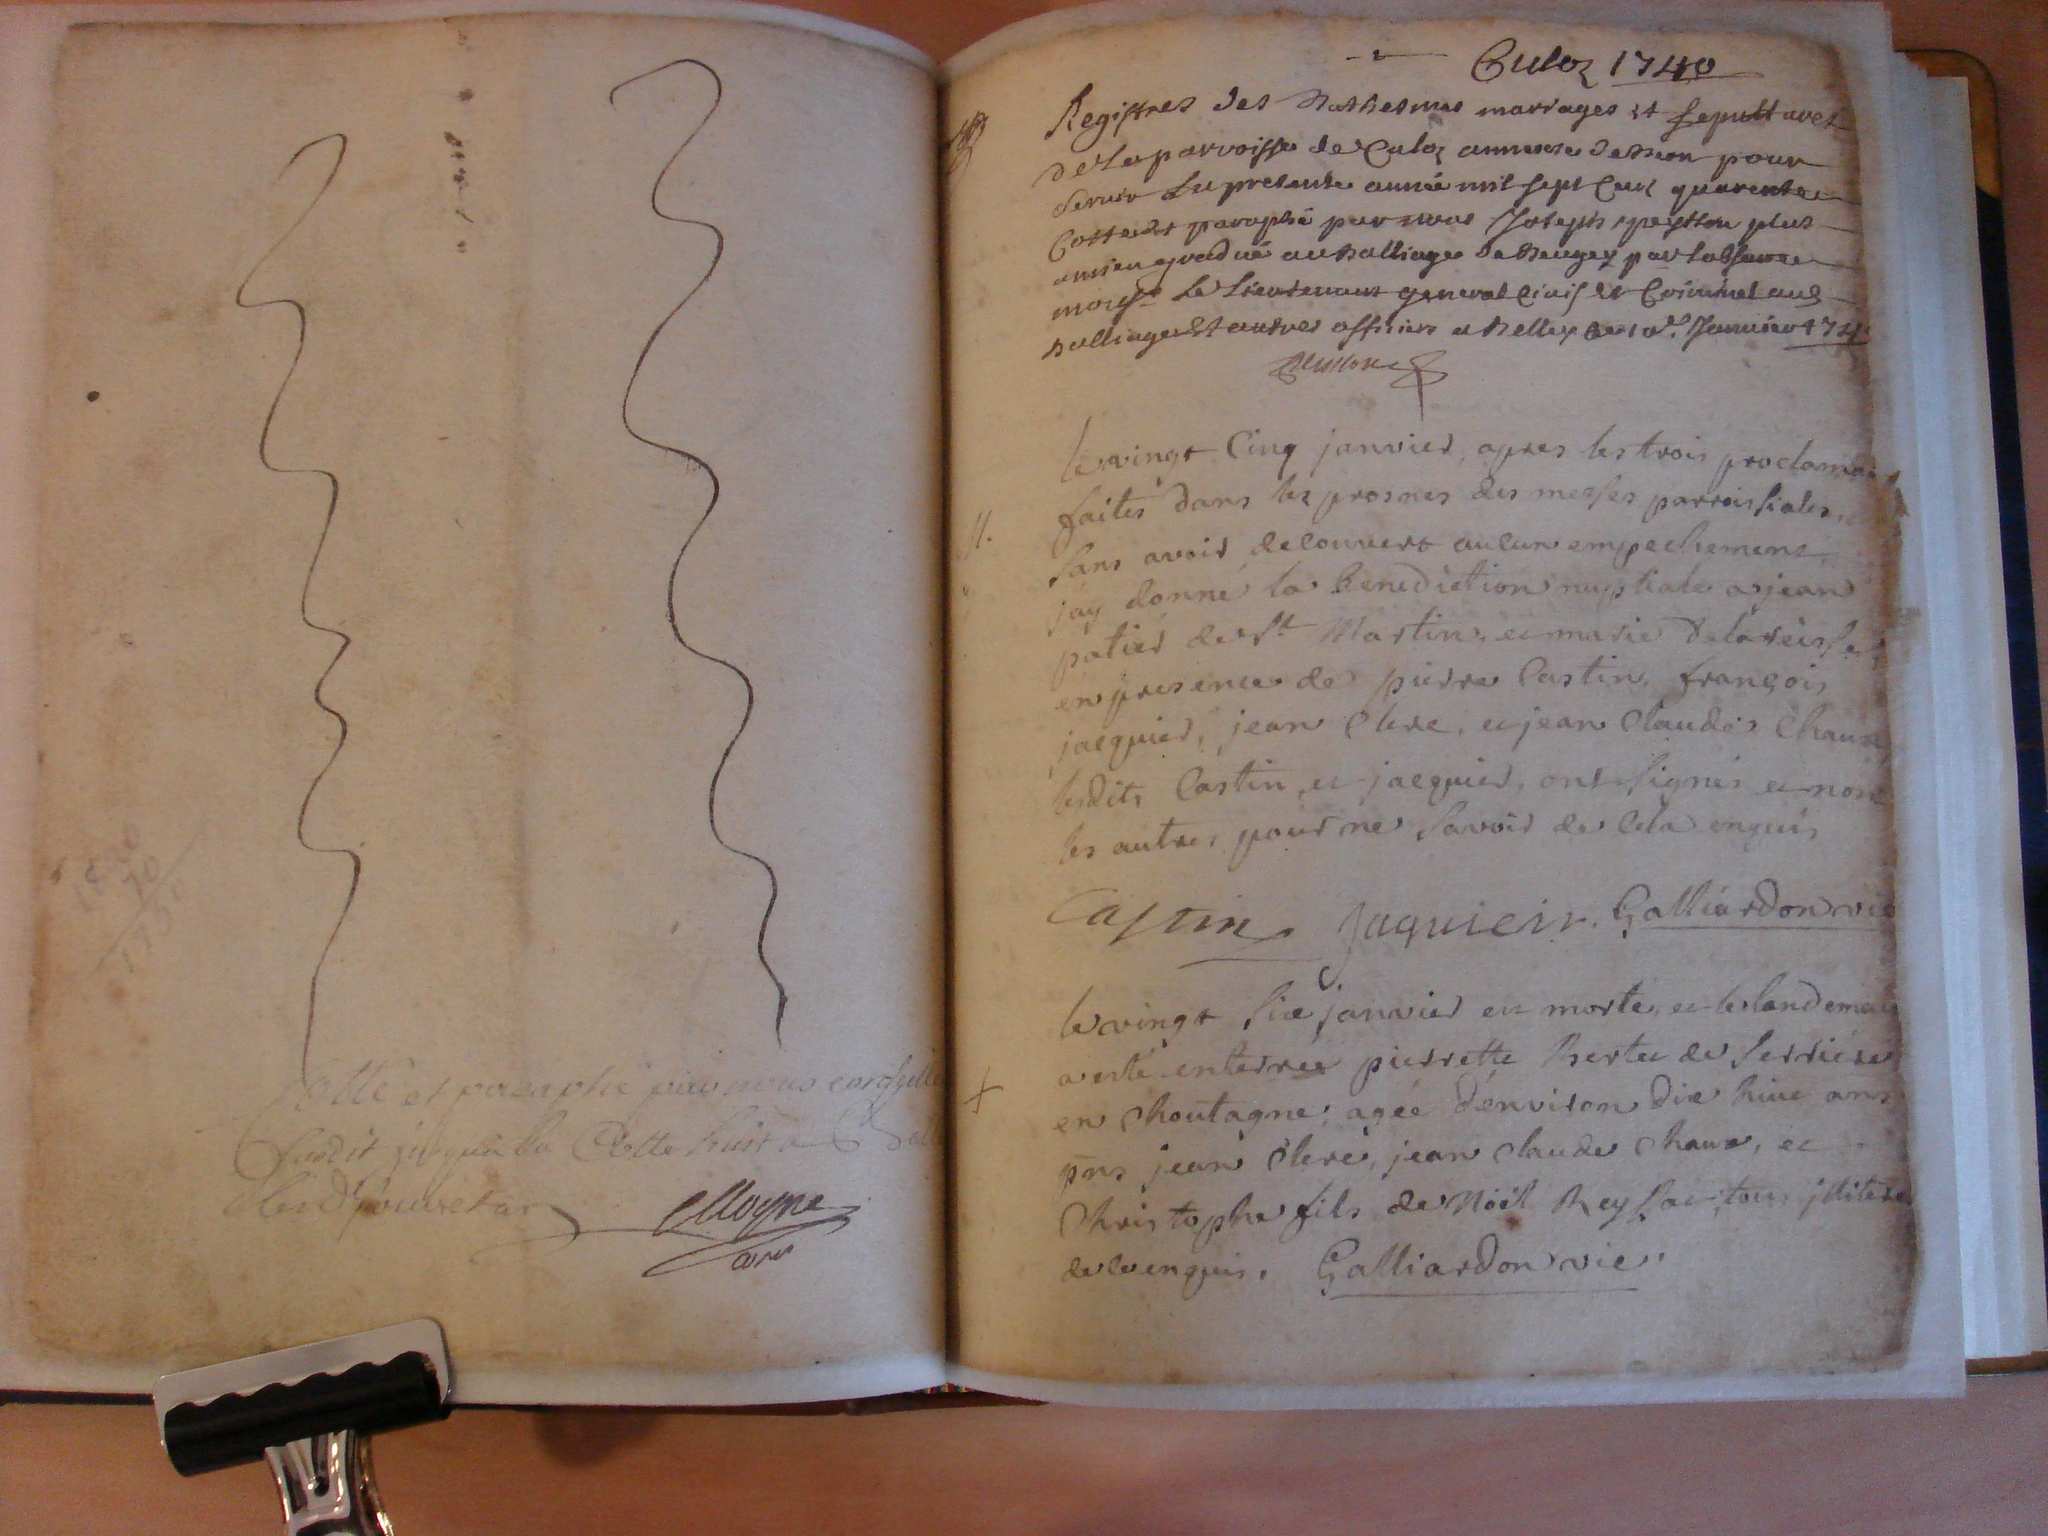 Cotté et paraphé par nous conseiller
susdit jusqu'a la Cotte huit a
Moyne
Culoz 1740
Registres des Bathesmes mariages et sepultures
de la parroisse de Culoz annexe de pour
servir la presente année mil sept cent quarente
Cotté et paraphé par nous Joseph plus
ancien gradué au Balliage de Beugey par l'absence
de le Lieutenant general Civil et Criminel aud
balliage et autres officiers a Belley ce Janvier 174
le vingt Cinq janvier, apres les trois proclama
faites dans les prosnes des messes parroissiales,
sans avoir decouvert aucun empechement
j'ay donné la Benediction nuptiale a jean
patier de St Martin, et marie Delareisse
en presence de pierre Castin, françois
jacquier, jean Clerc, et jean Claude Chaux
lesdits Castin et jacquier, ont signés et non
les autres pour ne savoir de cela enquis
Castin Jaquieir. Galliardon vic
le vingt six janvier est morte, et le landemain
a esté enterree pierrette Berte de Serriere
en Choutagne, agée d'environ dix huit ans
pns jean Clerc, jean Claude Chaux, et
Christophe fils de Noël Rey tous jllitere
de ce enquis. Galliardon vic.